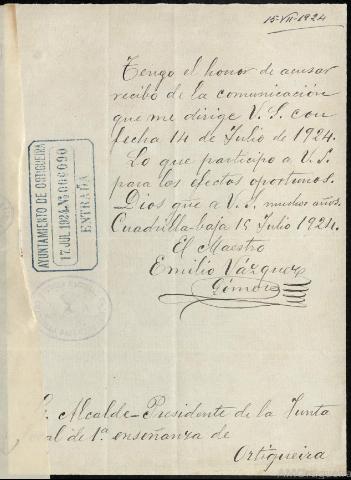 15-VII-1924
Tengo el honor de acusar
recibo de la comunicación
que me dirige V. S. con
fecha 14 de Julio de 1924.
Lo que participo a V. S.
para los efectos oportunos.
Dios gue a V. S. muchos años.
Cuadrilla-baja 15 Julio 1924.
El Maestro
Emilio Vázquez
Gómez
AYUNTAMIENTO DE ORTIGUEIRA
17 JUL. 1924
ENTRADA
Alcalde-Presidente de la Junta
de 1ª enseñanza de
Ortigueira